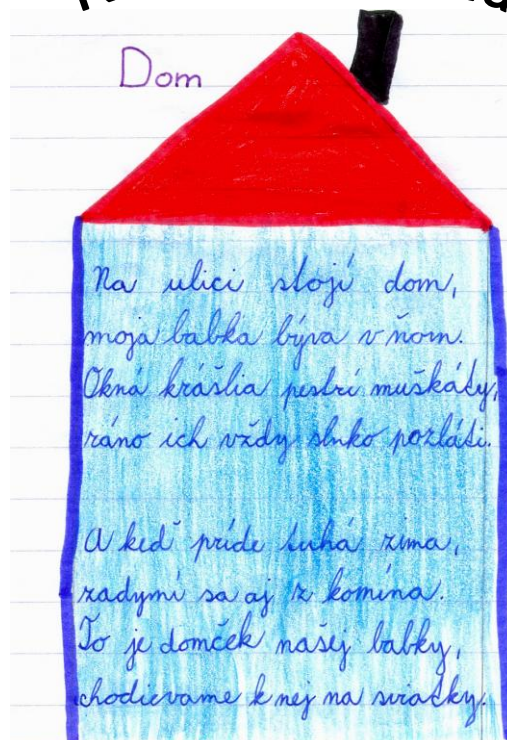 Dom
Na ulici stojí dom,
moja babka býva v ňom.
Okná krášlia pestrí muškáty,
ráno ich vždy slnko pozláti.
A keď príde tuhá zima,
zadymí sa aj z komína.
To je domček našej babky,
chodievame k nej na sviatky.